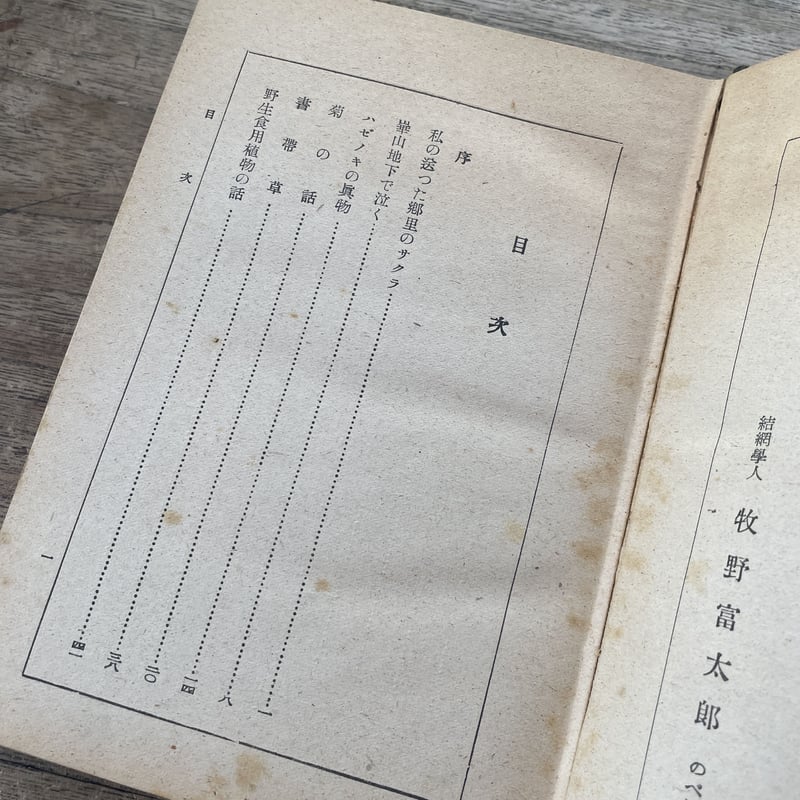 結網學人 牧野富太郎 のペ
目次
序
私の送つた郷里のサクラ……一
崋山地下で泣く……八
ハゼノキの眞物……一四
菊の話……二〇
書帶草……三八
野生食用植物の話……四一
目次 一